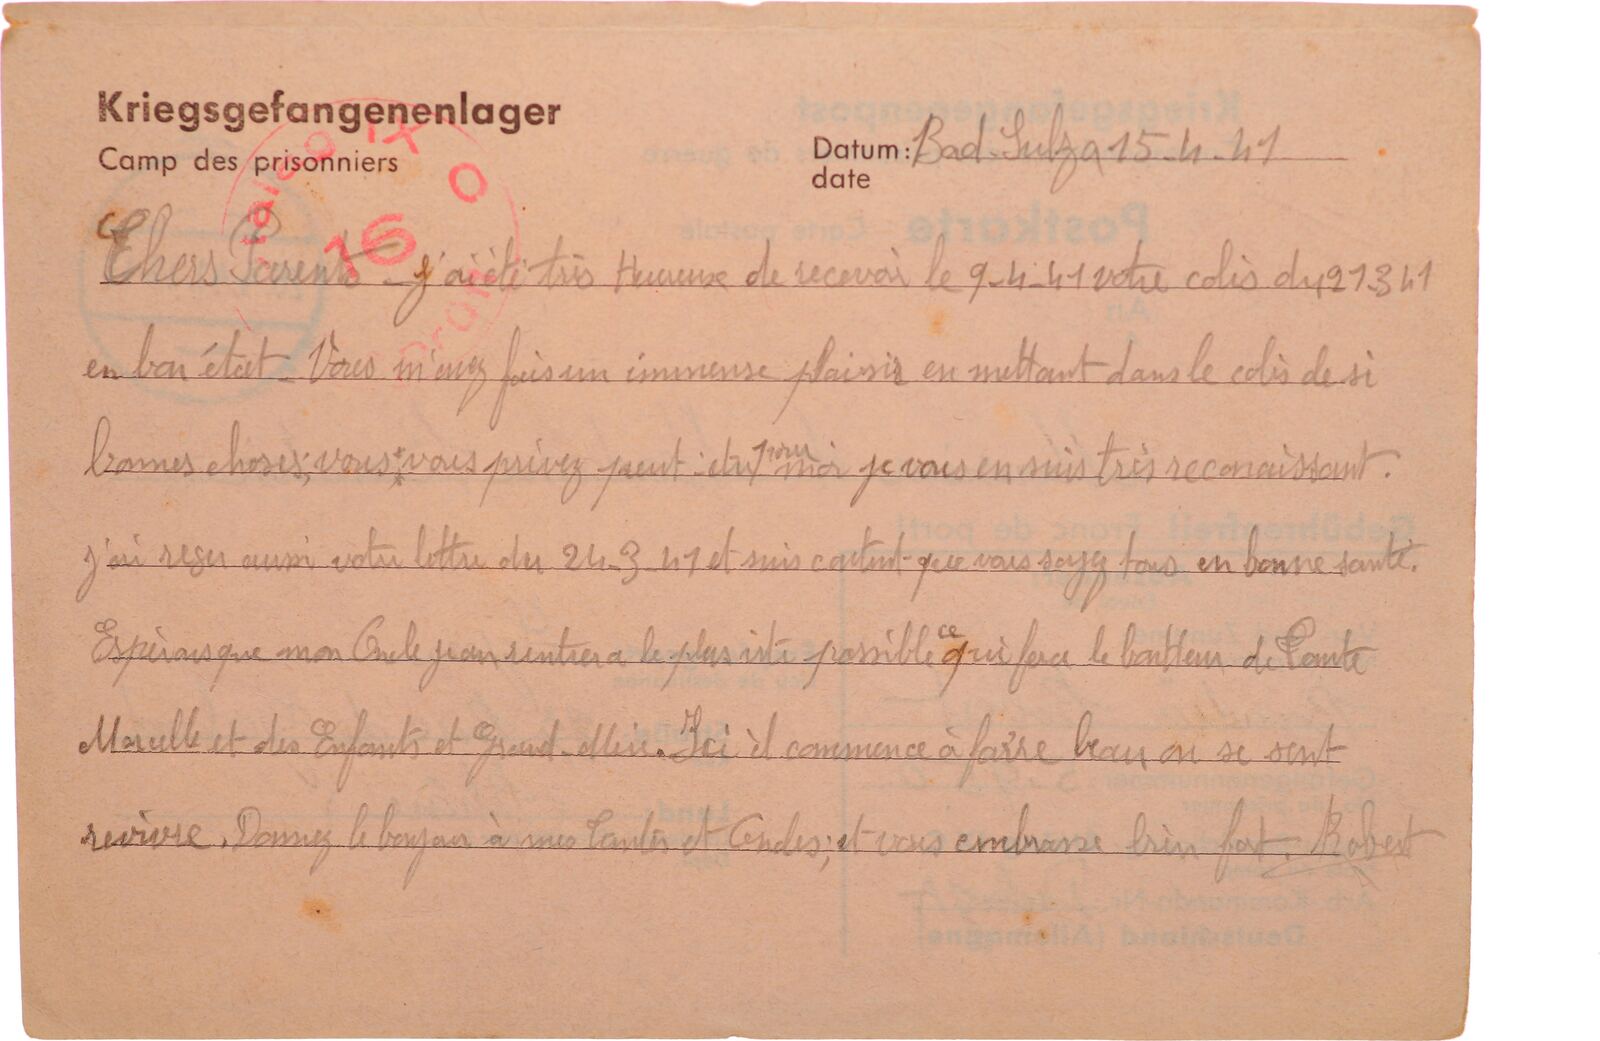 Kriegsgefangenenlager
Camp des prisonniers
Datum: Bad-Sulza 15-4-41
date
Stalag IX C
16
Geprüft
Chers Parents - j'ai été très Heureux de recevoir le 9-4-41 votre colis du 21-3 41
en bon état - Vous m'avez fais un immense plaisir en mettant dans le colis de si
bonnes choses; vous vous privez pour moi je vous en suis très reconaissant.
j'ai reçu aussi votre lettre du 24-3-41 et suis content que vous soyez tous en bonne santé.
Espérons que mon Oncle jean rentrera le plus vite possible ce qui fera le bonheur de Tante
Marcelle et des Enfants et Grand-Mère. Ici il commence à faire beau on se sent
revivre. Donnez le bonjour à mes Tantes et Oncles; et vous embrasse bien fort. Robert